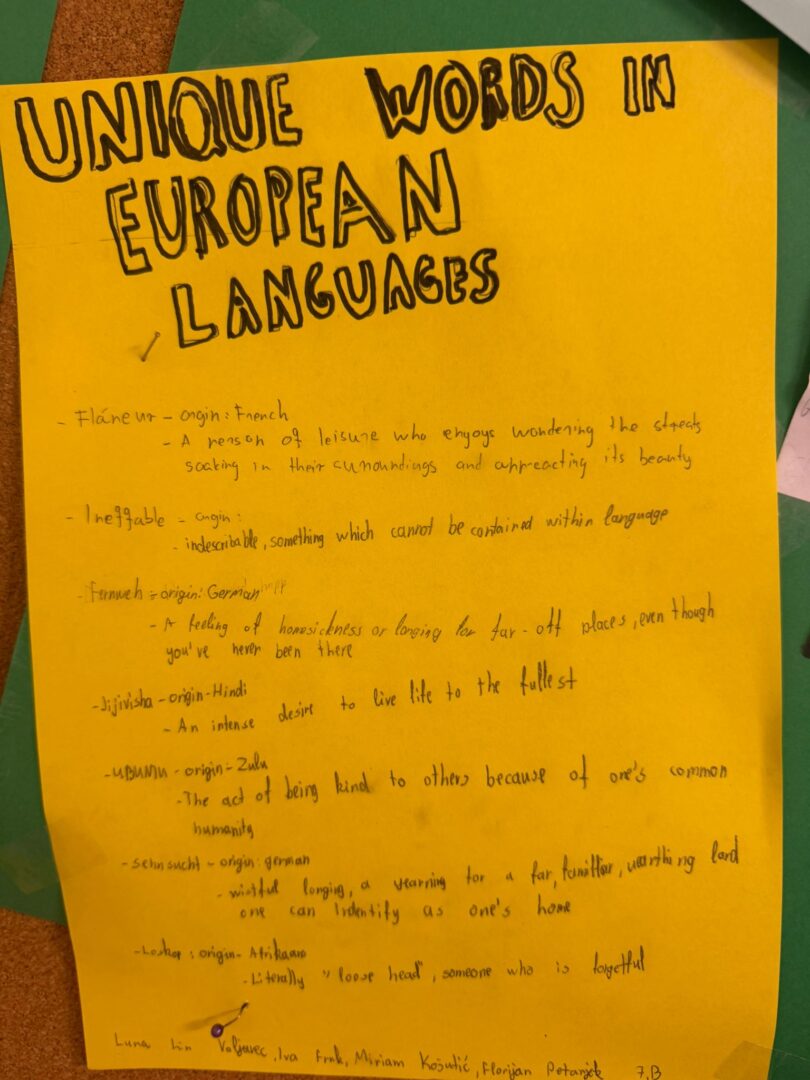 UNIQUE WORDS IN
EUROPEAN
LANGUAGES
- Fláneur - origin: French
- A person of leisure who enyoys wondering the streets
soaking in their surroundings and appreacting its beauty
- Ineffable - origin:
- indescribable, something which cannot be contained within language
- Fernweh - origin: German
- A feeling of homesickness or longing for far-off places, even though
you've never been there
- Jijivisha - origin - Hindi
- An intense desire to live life to the fullest
- UBUNTU - origin - Zulu
- The act of being kind to others because of one's common
humanity
- sehnsucht - origin: german
- wistful longing, a yearning for a far, familiar, land
one can indentify as one's home
- Loskop: origin - Afrikaans
- Literally "loose head", someone who is forgetful
Luna Lin Valjavec, Iva Frnk, Miriam Košutić, Florijan Petanjek 7.B